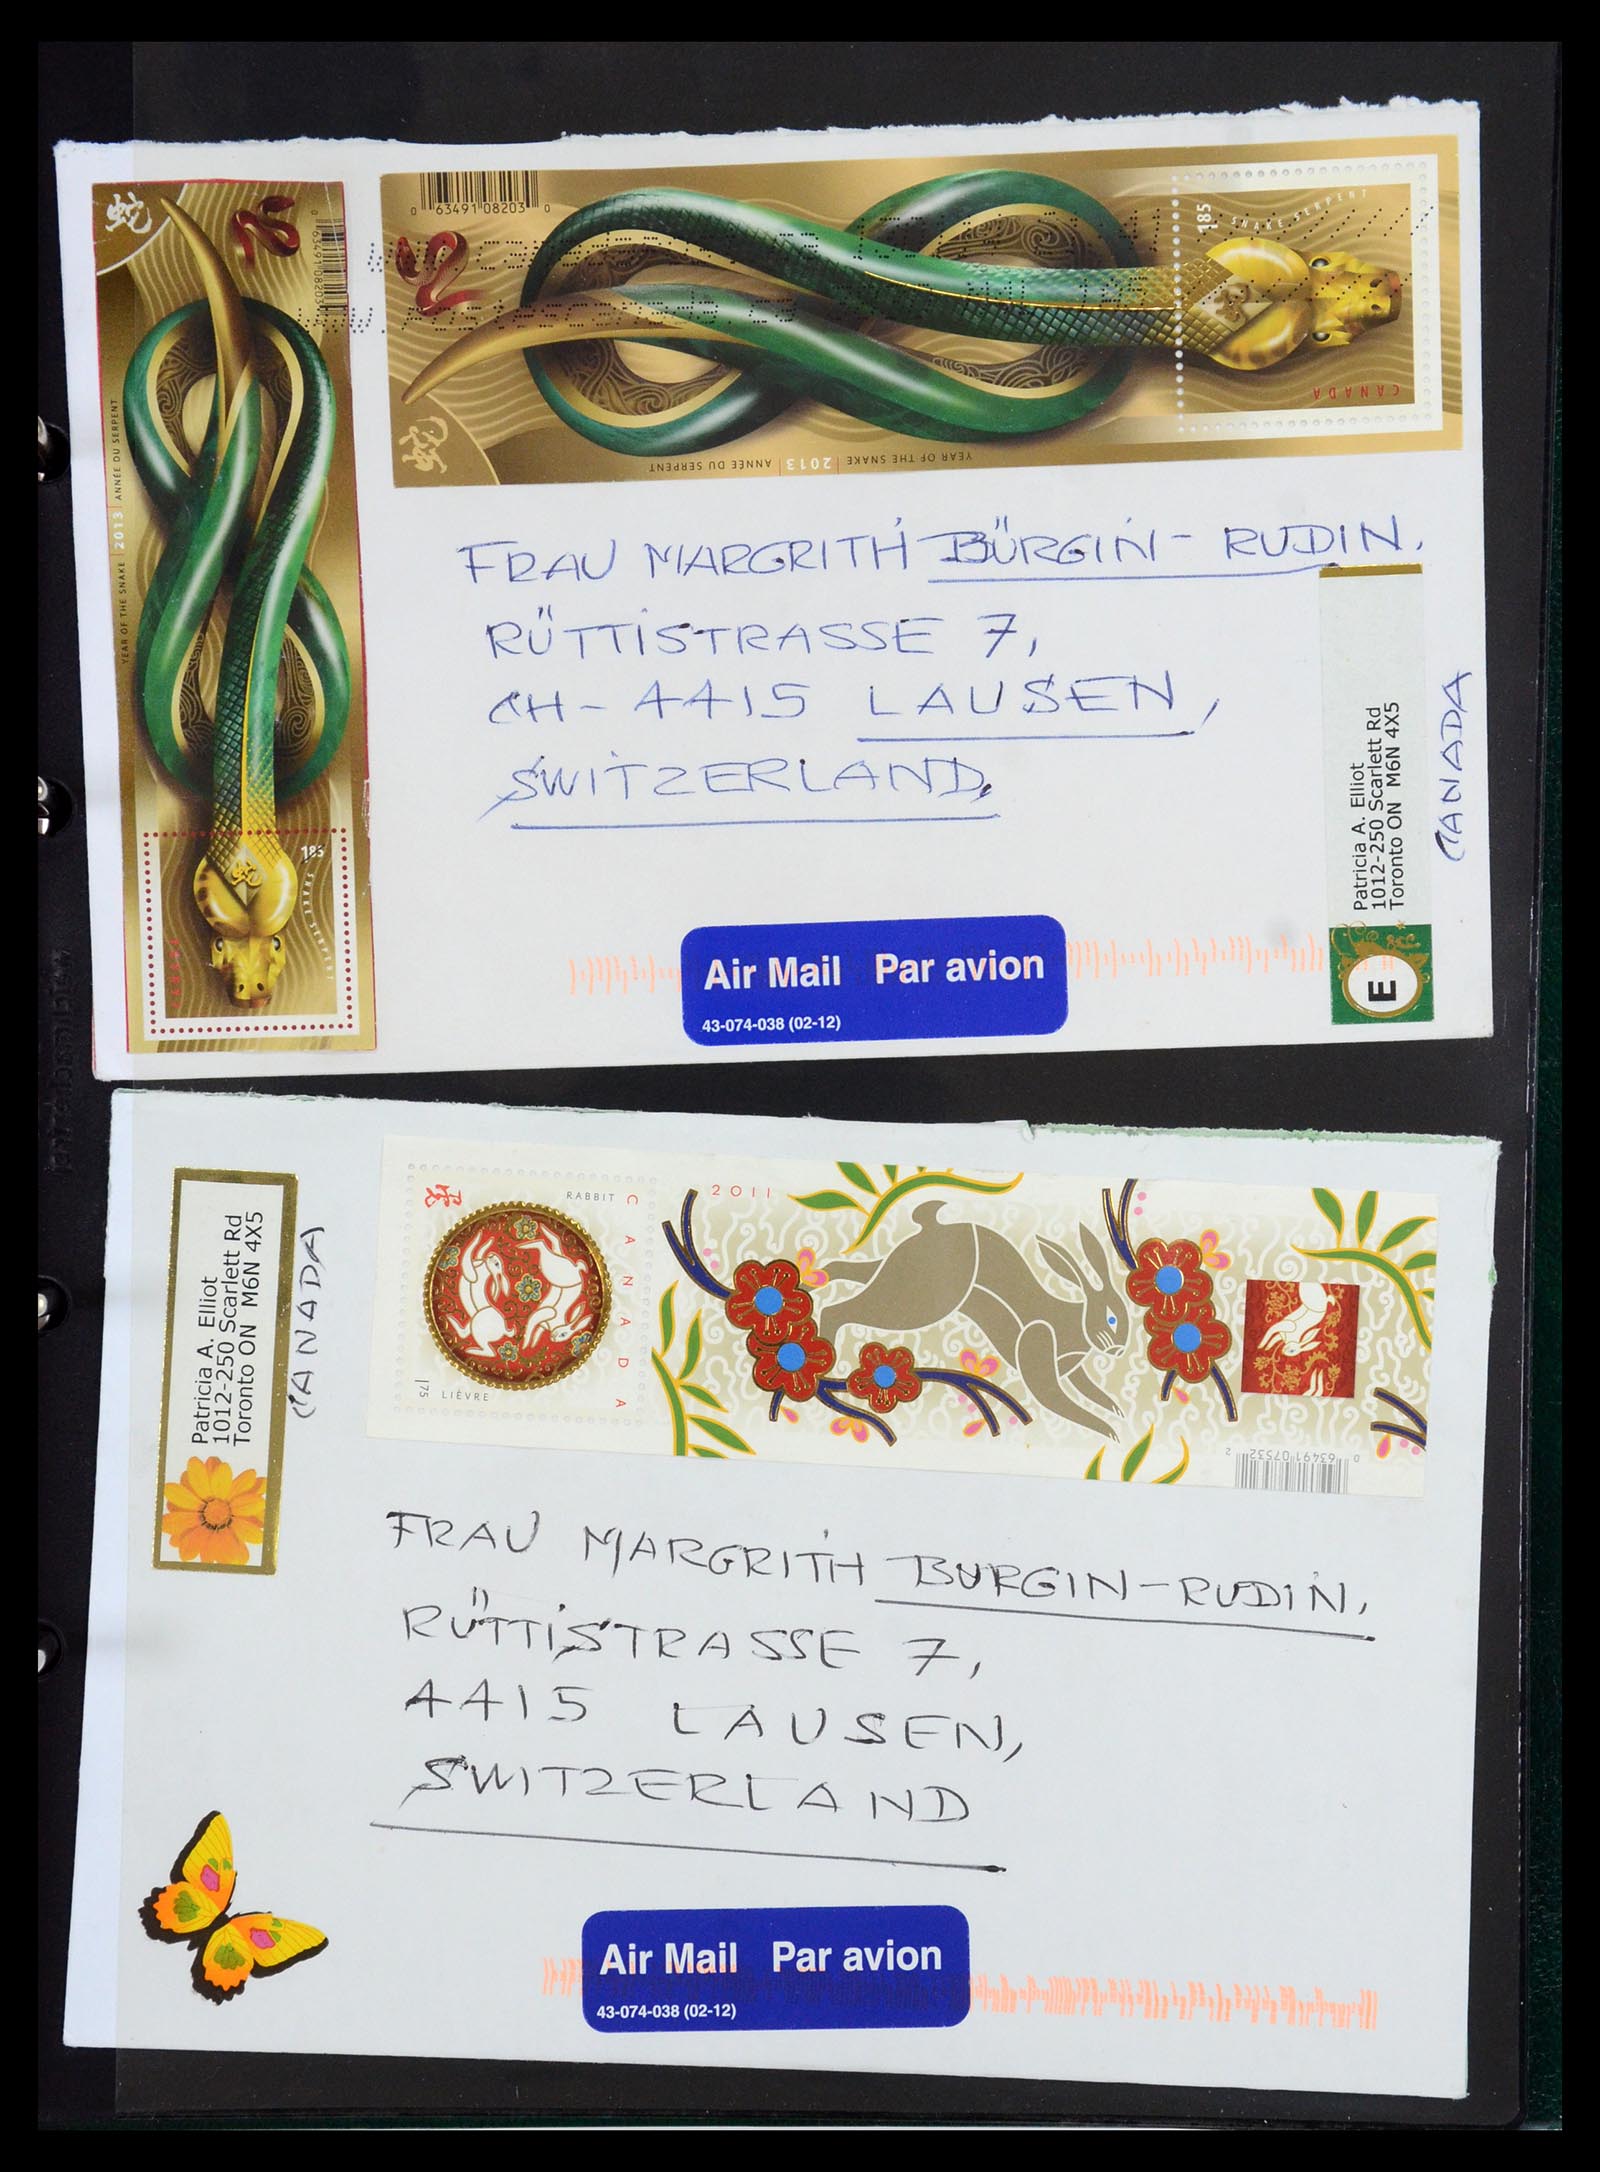 蛇
0 63491 08203
YEAR OF THE SNAKE | 2013 | ANNÉE DU SERPENT
1.85
SNAKE SERPENT
CANADA
0 63491 08203 0
1.85
SNAKE SERPENT
CANADA
蛇
YEAR OF THE SNAKE | 2013 | ANNÉE DU SERPENT
FRAU MARGRITH BÜRGIN-RUDIN,
RÜTTISTRASSE 7,
CH-4415 LAUSEN,
SWITZERLAND.
Patricia A. Elliot
1012-250 Scarlett Rd
Toronto ON M6N 4X5
E
CANADA
Air Mail Par avion
43-074-038 (02-12)
Patricia A. Elliot
1012-250 Scarlett Rd
Toronto ON M6N 4X5
CANADA
RABBIT
CANADA
175 LIÈVRE
2011
0 63491 07532 2
FRAU MARGRITH BURGIN-RUDIN,
RÜTTISTRASSE 7,
4415 LAUSEN,
SWITZERLAND
Air Mail Par avion
43-074-038 (02-12)